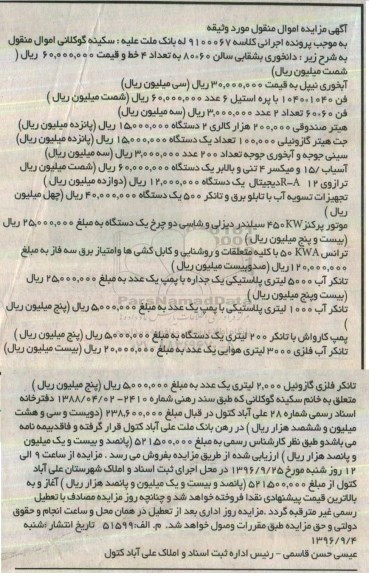 آگهی مزایده اموال منقول مورد وثیقه
به موجب پرونده اجرائی کلاسه ۹۱۰۰۰۶۷ له بانک ملت علیه : سکینه گوکلانی اموال منقول
به شرح زیر : دانخوری بشقابی سالن ۶۰*۸۰ به تعداد ۴ خط و قیمت ۶۰,۰۰۰,۰۰۰ ریال (
شصت میلیون ریال)
آبخوری نیپل به قیمت ۳۰,۰۰۰,۰۰۰ ریال (سی میلیون ریال)
فن ۱۰۴۰*۱۰۴۰ با پره استیل ۶ عدد ۶۰,۰۰۰,۰۰۰ ریال (شصت میلیون ریال)
فن ۶۰*۶۰ تعداد ۲ عدد ۳,۰۰۰,۰۰۰ ریال (سه میلیون ریال)
هیتر صندوقی ۲۰۰,۰۰۰ هزار کالری ۲ دستگاه ۱۵,۰۰۰,۰۰۰ ریال (پانزده میلیون ریال)
جت هیتر گازوئیلی ۱۰۰,۰۰۰ تعداد یک دستگاه ۱۵,۰۰۰,۰۰۰ ریال (پانزده میلیون ریال)
سینی جوجه و آبخوری جوجه تعداد ۲۰۰ عدد ۳,۰۰۰,۰۰۰ ریال (سه میلیون ریال)
آسیاب ۱۵/ و میکسر ۴ تنی و بالابر یک دستگاه ۶۰,۰۰۰,۰۰۰ ریال (شصت میلیون ریال
ترازوی ۱۲ R-A دیجیتال یک دستگاه ۱۲,۰۰۰,۰۰۰ ریال (دوازده میلیون ریال)
تجهیزات تسویه آب با تابلو برق و تانکر ۵۰۰ یک دستگاه ۴۰,۰۰۰,۰۰۰ ریال (چهل میلیون
ریال )
موتور پرکنز ۴۵۰KW سیلندر دیزلی و شاسی دو چرخ یک دستگاه به مبلغ ۲۵,۰۰۰,۰۰۰ ریال
(بیست و پنج میلیون ریال)
ترانس ۵۰ KWA با کلیه متعلقات و روشنایی و کابل کشی ها وامتیاز برق سه فاز به مبلغ
۱۲۰,۰۰۰,۰۰۰ ریال (صدوبیست میلیون ریال)
تانکر آب ۵۰۰۰ لیتری پلاستیکی یک جداره با پمپ یک عدد به مبلغ ۲۵,۰۰۰,۰۰۰ ریال
(بیست وپنج میلیون ریال)
تانکر آب ۱۰۰۰ لیتری پلاستیکی با پمپ یک عدد به مبلغ ۵,۰۰۰,۰۰۰ ریال (پنج میلیون ریال
)
پمپ کارواش با تانکر ۲۰۰ لیتری یک دستگاه به مبلغ ۵,۰۰۰,۰۰۰ ریال (پنج میلیون ریال )
تانکر آب فلزی ۳۰۰۰ لیتری هوایی یک عدد به مبلغ ۲۰,۰۰۰,۰۰۰ ریال (بیست میلیون ریال)
تانکر فلزی گازوئیل ۲,۰۰۰ لیتری یک عدد به مبلغ ۵,۰۰۰,۰۰۰ ریال (پنج میلیون ریال )
متعلق به خانم سکینه گوکلانی که طبق سند رهنی شماره ۲۴۱۰- ۱۳۸۸/۰۴/۰۲ دفترخانه
اسناد رسمی شماره ۲۸ علی آباد کتول در قبال مبلغ ۲۳۸,۶۰۰,۰۰۰ (دویست و سی و هشت
میلیون و ششصد هزار ریال ) در رهن بانک ملت علی آباد کتول قرار گرفته و فاقدبیمه نامه
می باشدو طبق نظر کارشناس رسمی به مبلغ ۵۲۱۵۰۰,۰۰۰ (پانصد و بیست و یک میلیون
و پانصد هزار ریال ) ارزیابی شده از طریق مزایده بفروش می رسد . مزایده از ساعت ۹ الی
۱۲ روز شنبه مورخ ۱۳۹۶/۹/۲۵ در محل اجرای ثبت اسناد و املاک شهرستان علی آباد
کتول از مبلغ ۵۲۱۵۰۰,۰۰۰ (پانصد و بیست و یک میلیون و پانصد هزار ریال ) آغاز و به
بالاترین قیمت پیشنهادی نقدا فروخته خواهد شد و چنانچه روز مزایده مصادف با تعطیل
رسمی غیر مترقبه گردد .مزایده روز اداری بعد از تعطیل در همان محل و ساعت انجام و حقوق
دولتی و حق مزایده طبق مقررات وصول خواهد شد. م. الف:۵۱۵۹۹ تاریخ انتشار :شنبه
۱۳۹۶/۹/۴
عیسی حسن قاسمی - رئیس اداره ثبت اسناد و املاک علی آباد کتول